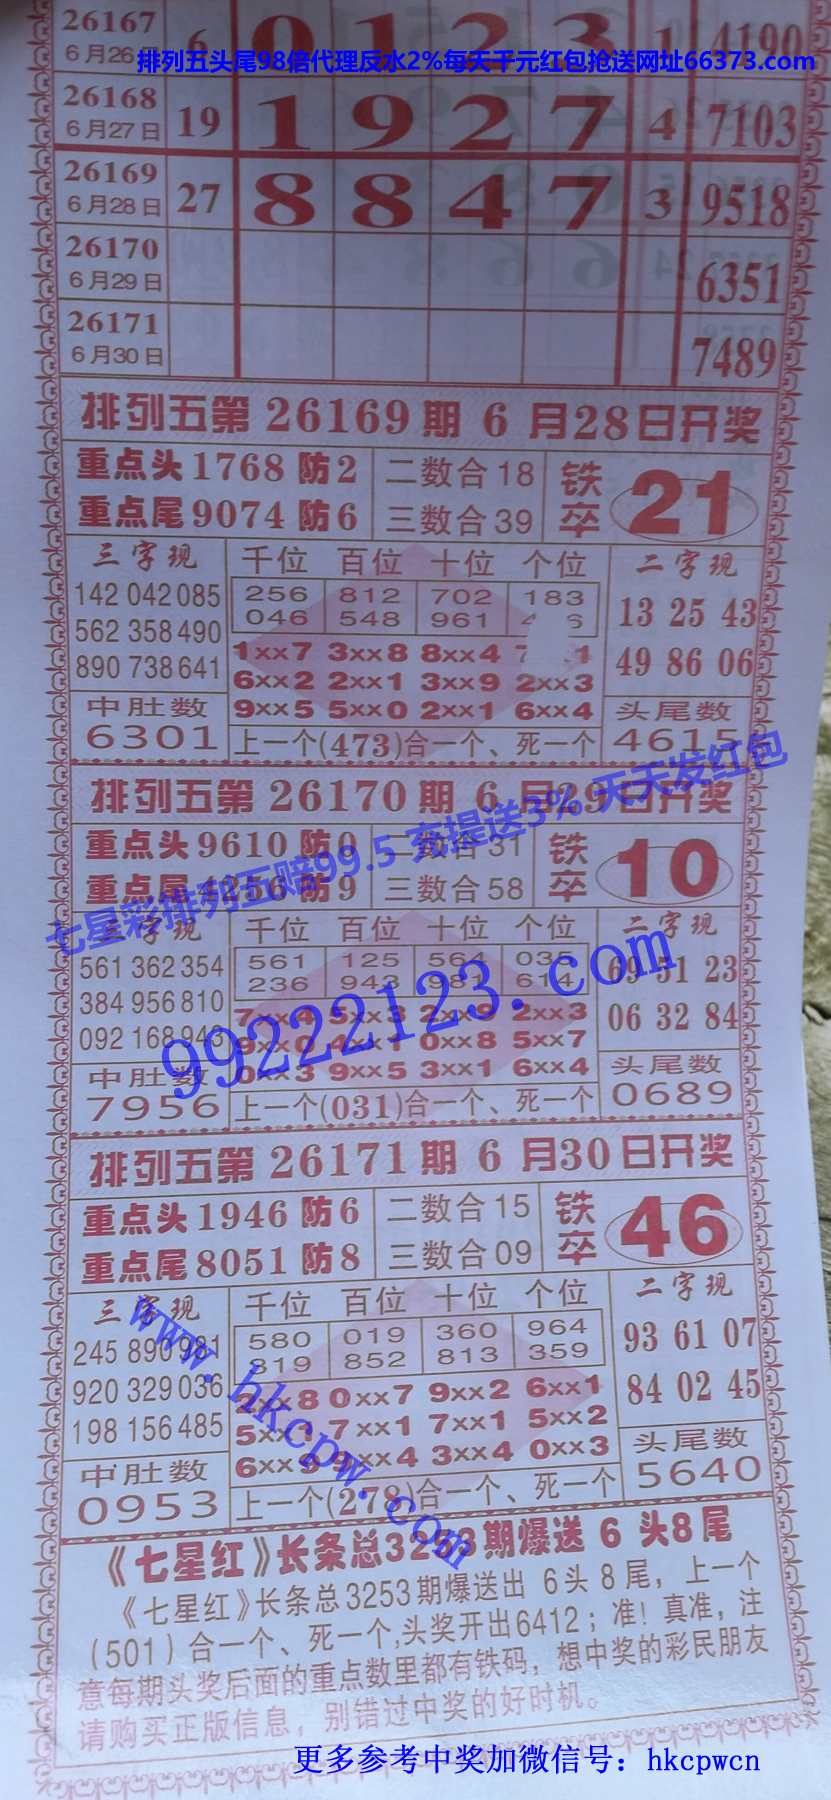 26167
6月26日
6 0 1 2 3 1 4190
排列五头尾98倍代理反水2%每天千元红包抢送网址66373.com
26168
6月27日
19 1 9 2 7 4 7103
26169
6月28日
27 8 8 4 7 3 9518
26170
6月29日
6351
26171
6月30日
7489
排列五第26169期6月28日开奖
重点头1768防2
重点尾9074防6
二数合18
三数合39
铁卒
21
三字现
142 042 085
562 358 490
890 738 641
中肚数
6301
千位 百位 十位 个位
256 812 702 183
046 548 961
1xx7 3xx8 8xx4
6xx2 2xx1 3xx9 2xx3
9xx5 5xx0 2xx1 6xx4
上一个(473)合一个、死一个
二字现
13 25 43
49 86 06
头尾数
4615
排列五第26170期6月29日开奖
重点头9610防0
重点尾4256防9
二数合31
三数合58
铁卒
10
七星彩排列五赔99.5 充提送3% 天天发红包
三字现
561 362 354
384 956 810
092 168 943
中肚数
7956
千位 百位 十位 个位
561 125 564 035
236 943 987 614
7xx4 5xx3 2xx9 2xx3
9xx0 4xx1 0xx8 5xx7
0xx3 9xx5 3xx1 6xx4
上一个(031)合一个、死一个
二字现
69 51 23
06 32 84
头尾数
0689
99222123.com
排列五第26171期6月30日开奖
重点头1946防6
重点尾8051防8
二数合15
三数合09
铁卒
46
三字现
245 890 931
920 329 036
198 156 485
中肚数
0953
千位 百位 十位 个位
580 019 360 964
819 852 813 359
2xx8 0xx7 9xx2 6xx1
7xx1 7xx1 5xx2
9xx4 3xx4 0xx3
上一个(278)合一个、死一个
二字现
93 61 07
84 02 45
头尾数
5640
www.hkcpw.com
《七星红》长条总3253期爆送6头8尾
《七星红》长条总3253期爆送出6头8尾，上一个
(501)合一个、死一个,头奖开出6412；准！真准，注
意每期头奖后面的重点数里都有铁码，想中奖的彩民朋友
请购买正版信息，别错过中奖的好时机。
更多参考中奖加微信号：hkcpwcn